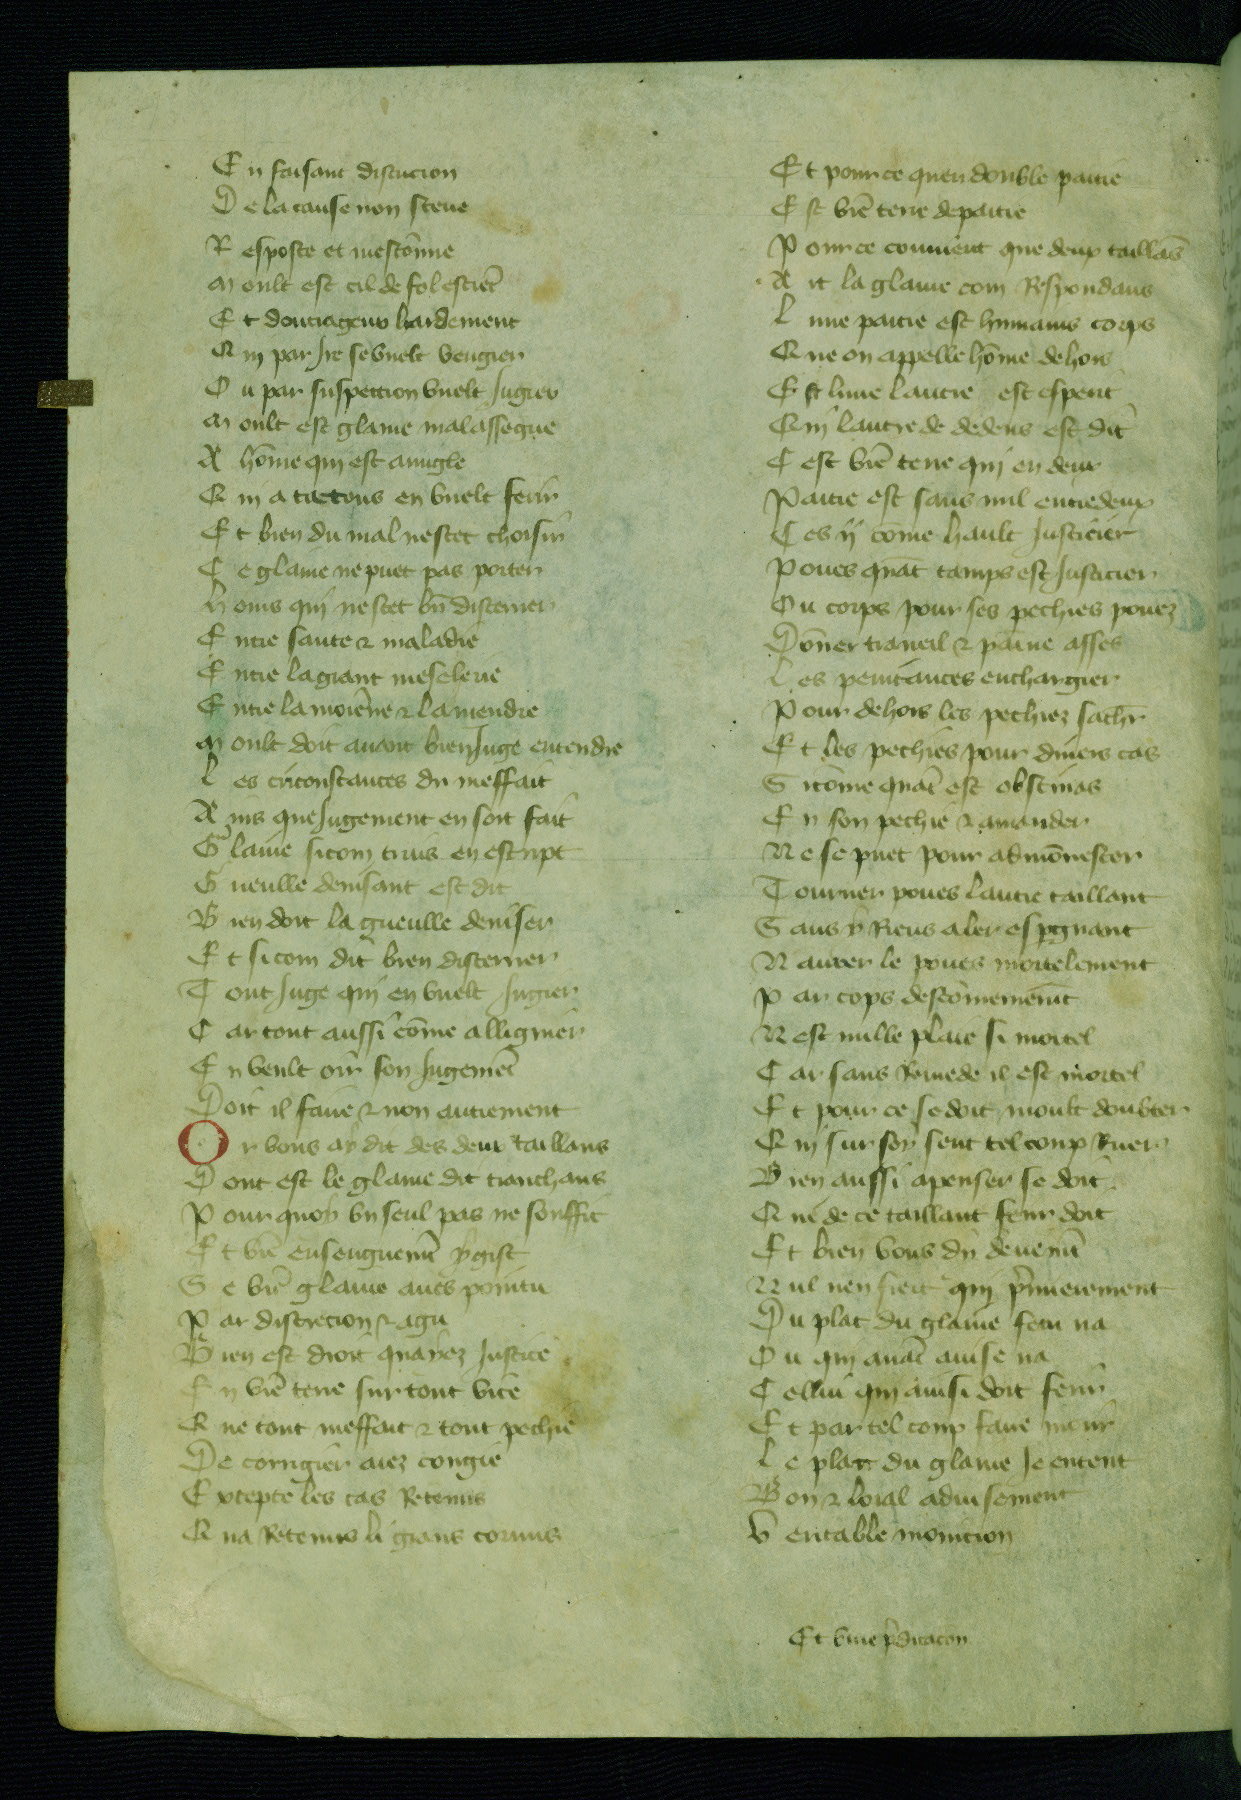 En faisant discucion
De la cause non sceue
Resposte et mescōnue
Moult est cil de fol esciēt
Et doutrageux hardement
Qui par Ire se vuelt vengier
Ou par suspection vuelt Jugier
Moult est glaiue mal assegue
A hōme qui est auugle
Qui a tactons en vuelt ferir
Et bien du mal ne scet choisir
Ce glaiue ne puet pas porter
Homs qui ne scet bn̄ discerner
Entre sante & maladie
Entre la grant meselerie
Entre la moiēne & la mendre
Moult doit auant bien Juge entendre
Les circonstances du meffait
Ains que Jugement en soit fait
Glaiue si com truis en escript
Gueulle deuisant est dit
Bien doit la gueulle deuiser
Et si com dit bien discerner
Tout Juge qui en vuelt Jugier
Car tout aussi cōme alliguier
En veult oir son Jugemēt
Doit il faire & non autrement
Or vous ay dit des deux taillans
Dont est le glaiue dit tranchans
Pour quoy vn seul pas ne souffit
Et vrē enseignemēt y gist
Se vrē glaiue aues pointu
Par discrecion & agu
Bien est droit quayez Justice
En vrē terre sur tout vice
Que tout meffait & tout pechie
De corrigier aiez congie
Excepte les cas Retenus
Qua Retenus li grans cornus
Et pour ce quen double partie
Est vrē terre departie
Pour ce conuient que deux taillās
Ait la glaiue com Respondans
Lune partie est humains corps
Que on appelle hōme dehors
Et lune lautre est esperit
Qui lautre de dedens est dit
Cest vrē terre qui en deux
Partie est sans nul entredeux
Ces ij cōme hault Justicier
Poues quāt tamps est Justicier
Ou corps pour ses pechies pouez
Dōner traueil & paine asses
Les penitances enchargier
Pour dehors les pechiez sachr̄
Et les pechies pour diuers cas
Si cōme quāt est obstinas
En son pechie & amander
Ne se puet pour admōnester
Tourner poues lautre taillant
Sans y Riens aler espgnant
Naurer le poues mortelement
Par cops descōmeniemēt
Nest nulle plaie si mortel
Car sans Remede il est mortel
Et pour ce se doit moult doubter
Qui sur soy sent tel coup Ruer
Bien aussi apenser se doit
Qui de ce taillant ferir doit
Et bien vous di deuemēt
Nul nen fiert qui prmierement
Du plat du glaiue feru na
Ou qui auāt auise na
Cellui qui ainsi doit ferir
Et par tel coup faire mourir
Le plat du glaiue Je entent
Bon & loial aduisement
Veritable monicion
Et vraie p̄dicacōn